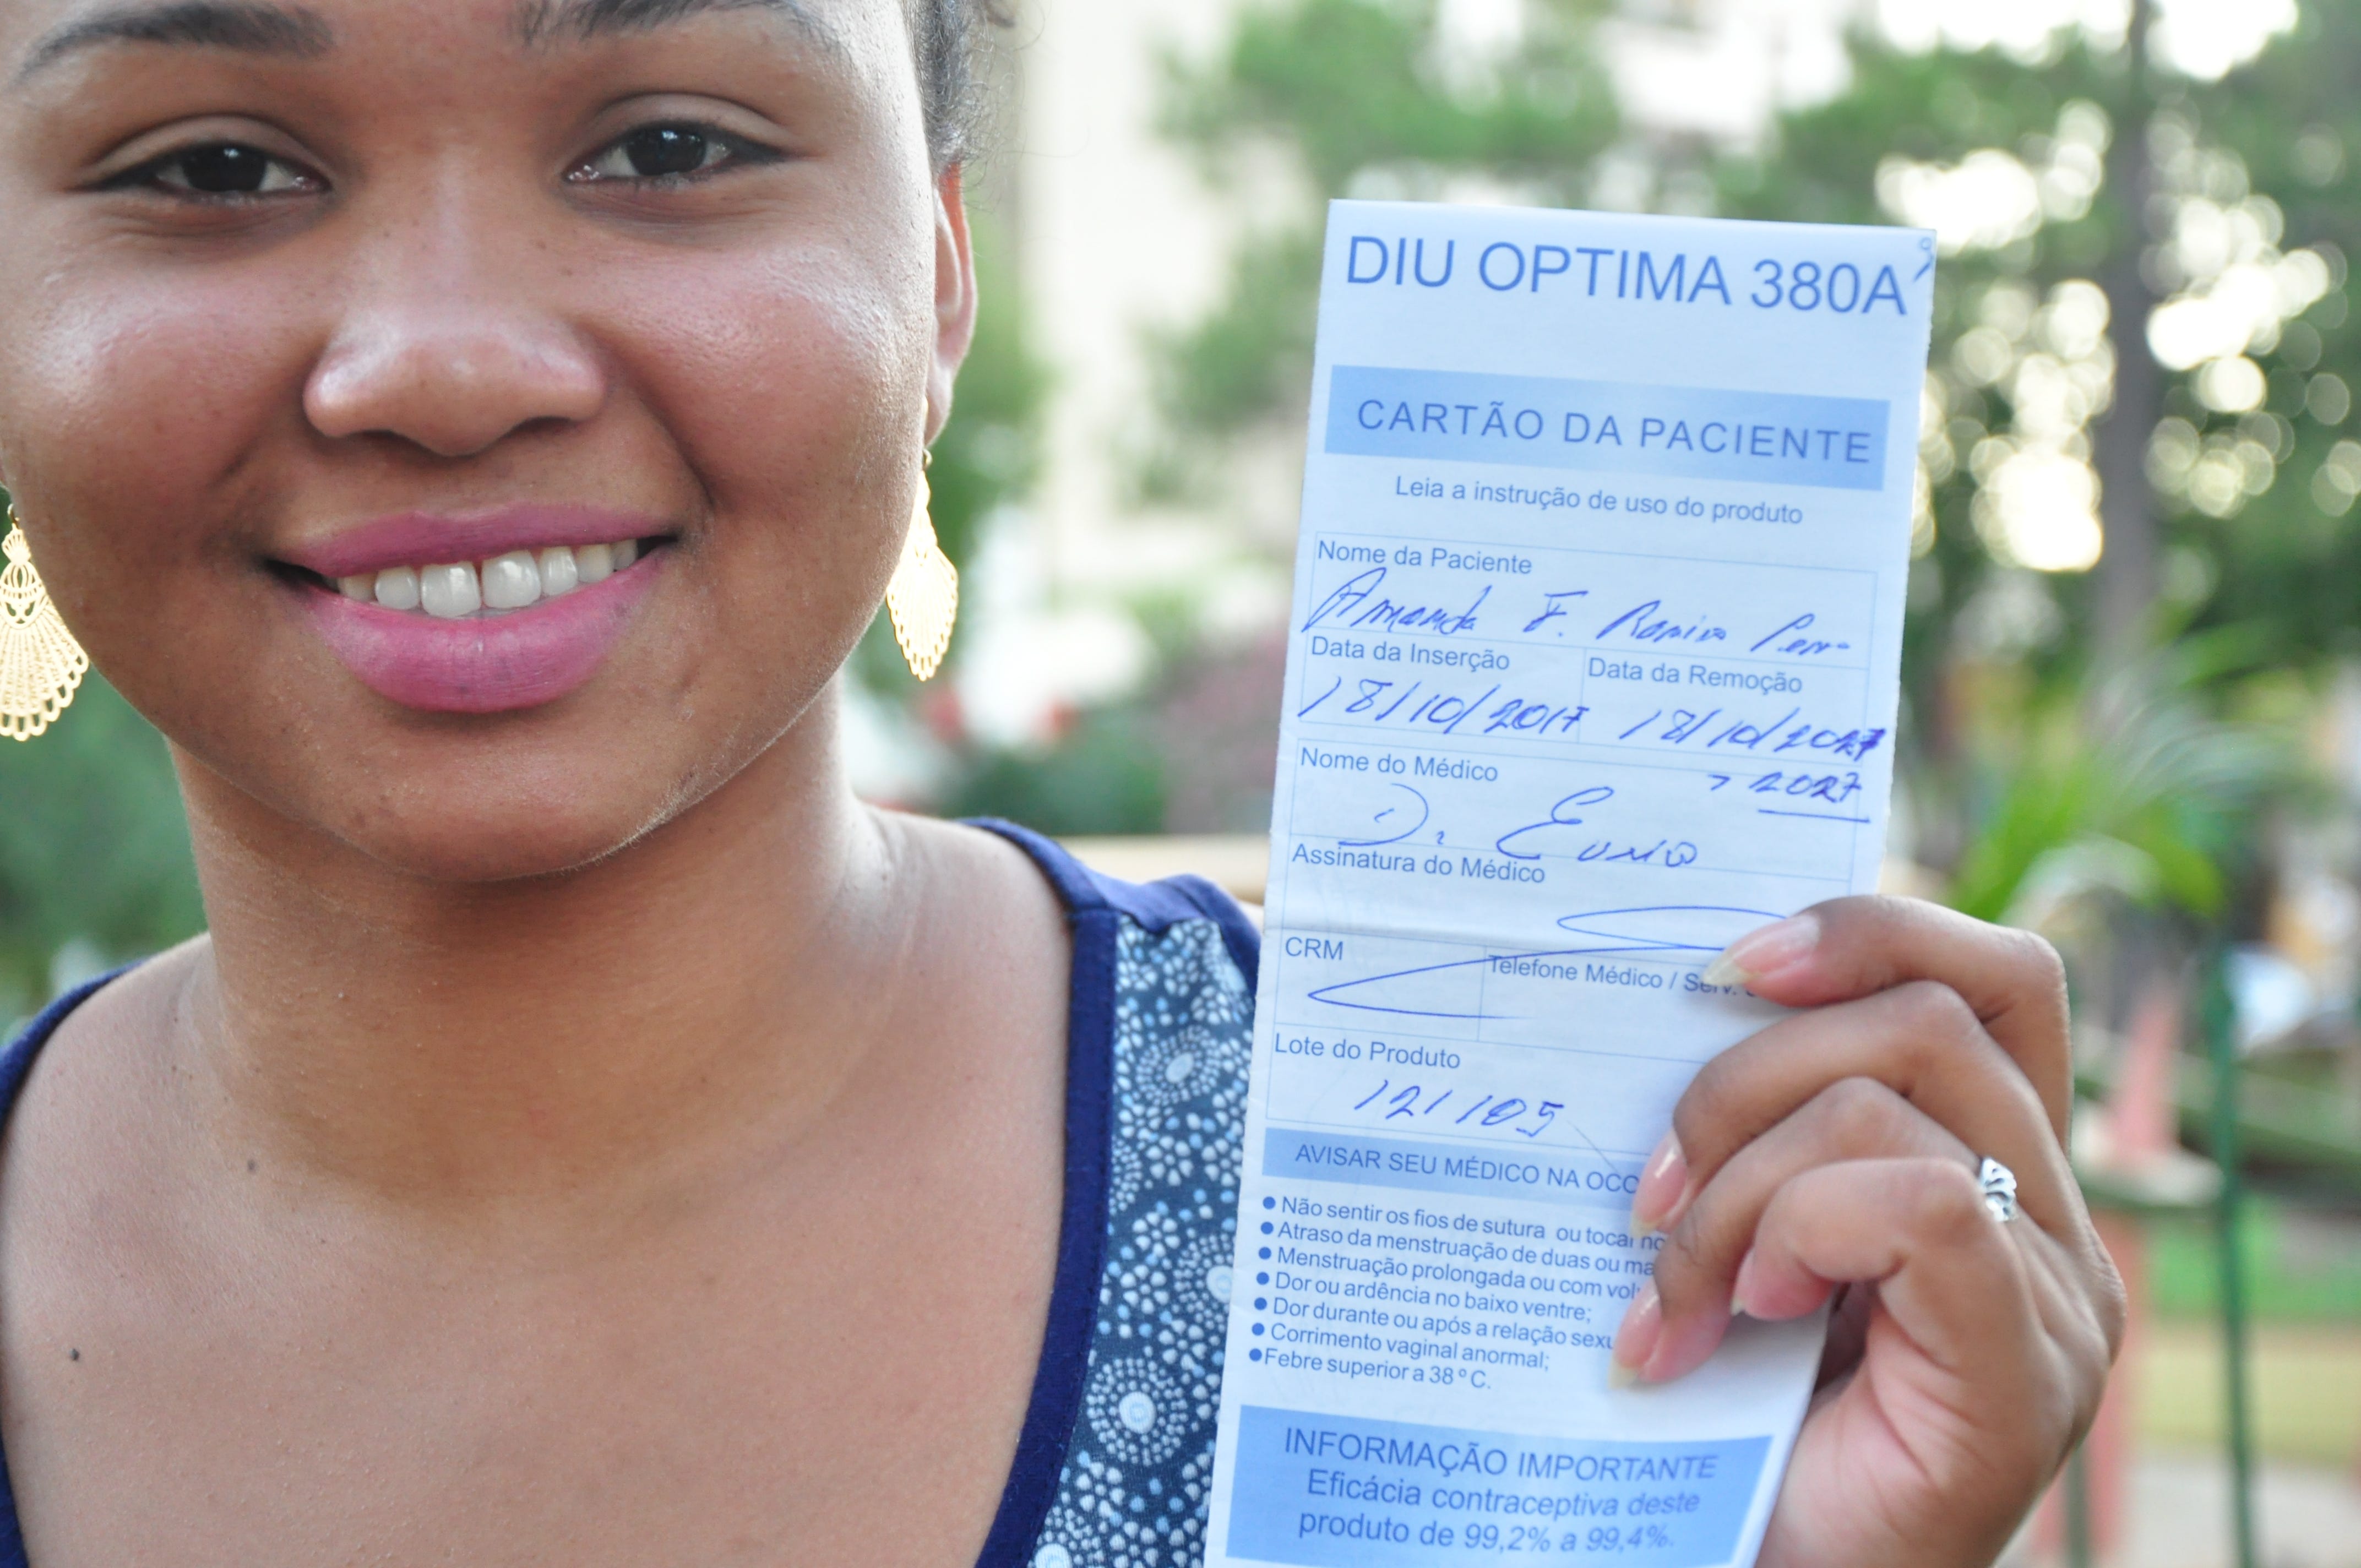 DIU OPTIMA 380A
CARTÃO DA PACIENTE
Leia a instrução de uso do produto
Nome da Paciente
Amanda F.
Data da Inserção Data da Remoção
18/10/2017 18/10/2027
Nome do Médico > 2027
Assinatura do Médico
CRM Telefone Médico / Serv.
Lote do Produto
121105
AVISAR SEU MÉDICO NA OCO
● Não sentir os fios de sutura ou tocar no
● Atraso da menstruação de duas ou ma
● Menstruação prolongada ou com vol
● Dor ou ardência no baixo ventre;
● Dor durante ou após a relação sexu
● Corrimento vaginal anormal;
● Febre superior a 38 º C.
INFORMAÇÃO IMPORTANTE
Eficácia contraceptiva deste
produto de 99,2% a 99,4%.